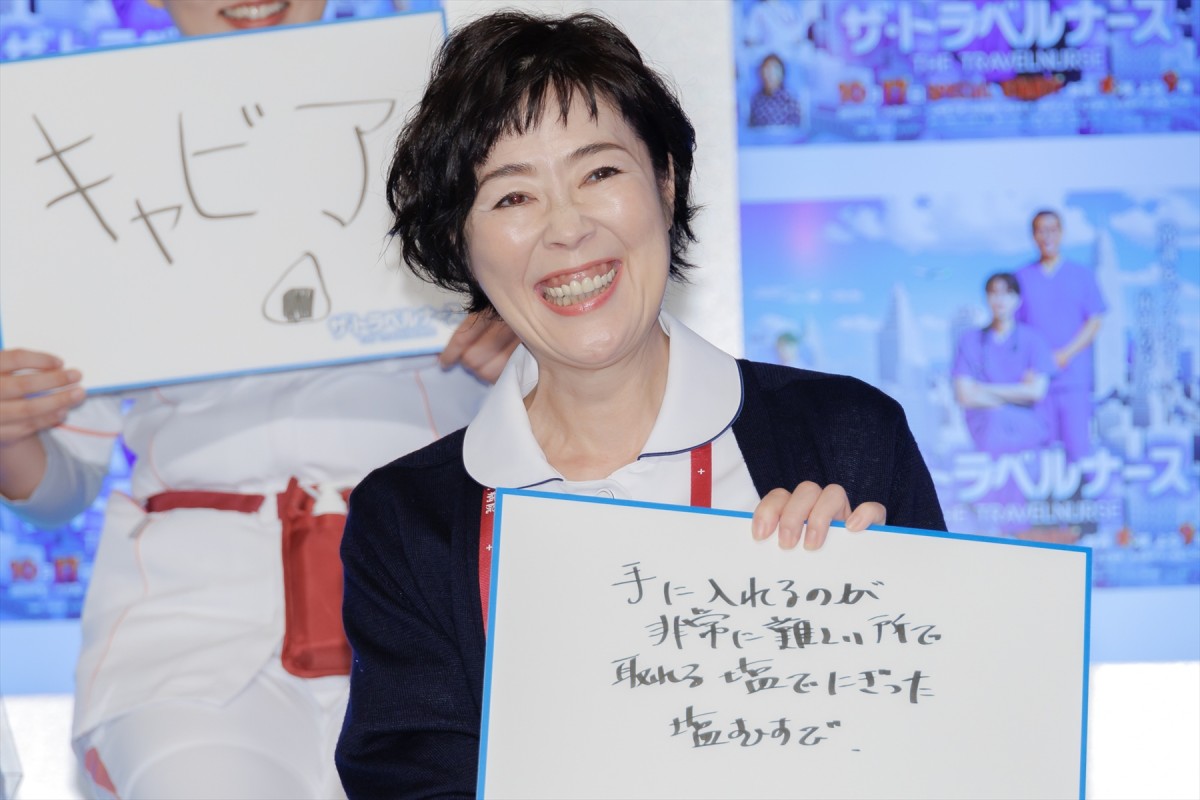 キャビア
ザ・トラベルナース
手に入れるのが
非常に難しい所で
取れる塩でにぎった
塩むすび.
ザ・トラベルナース
THE TRAVELNURSE
ザ・トラベルナース
THE TRAVELNURSE